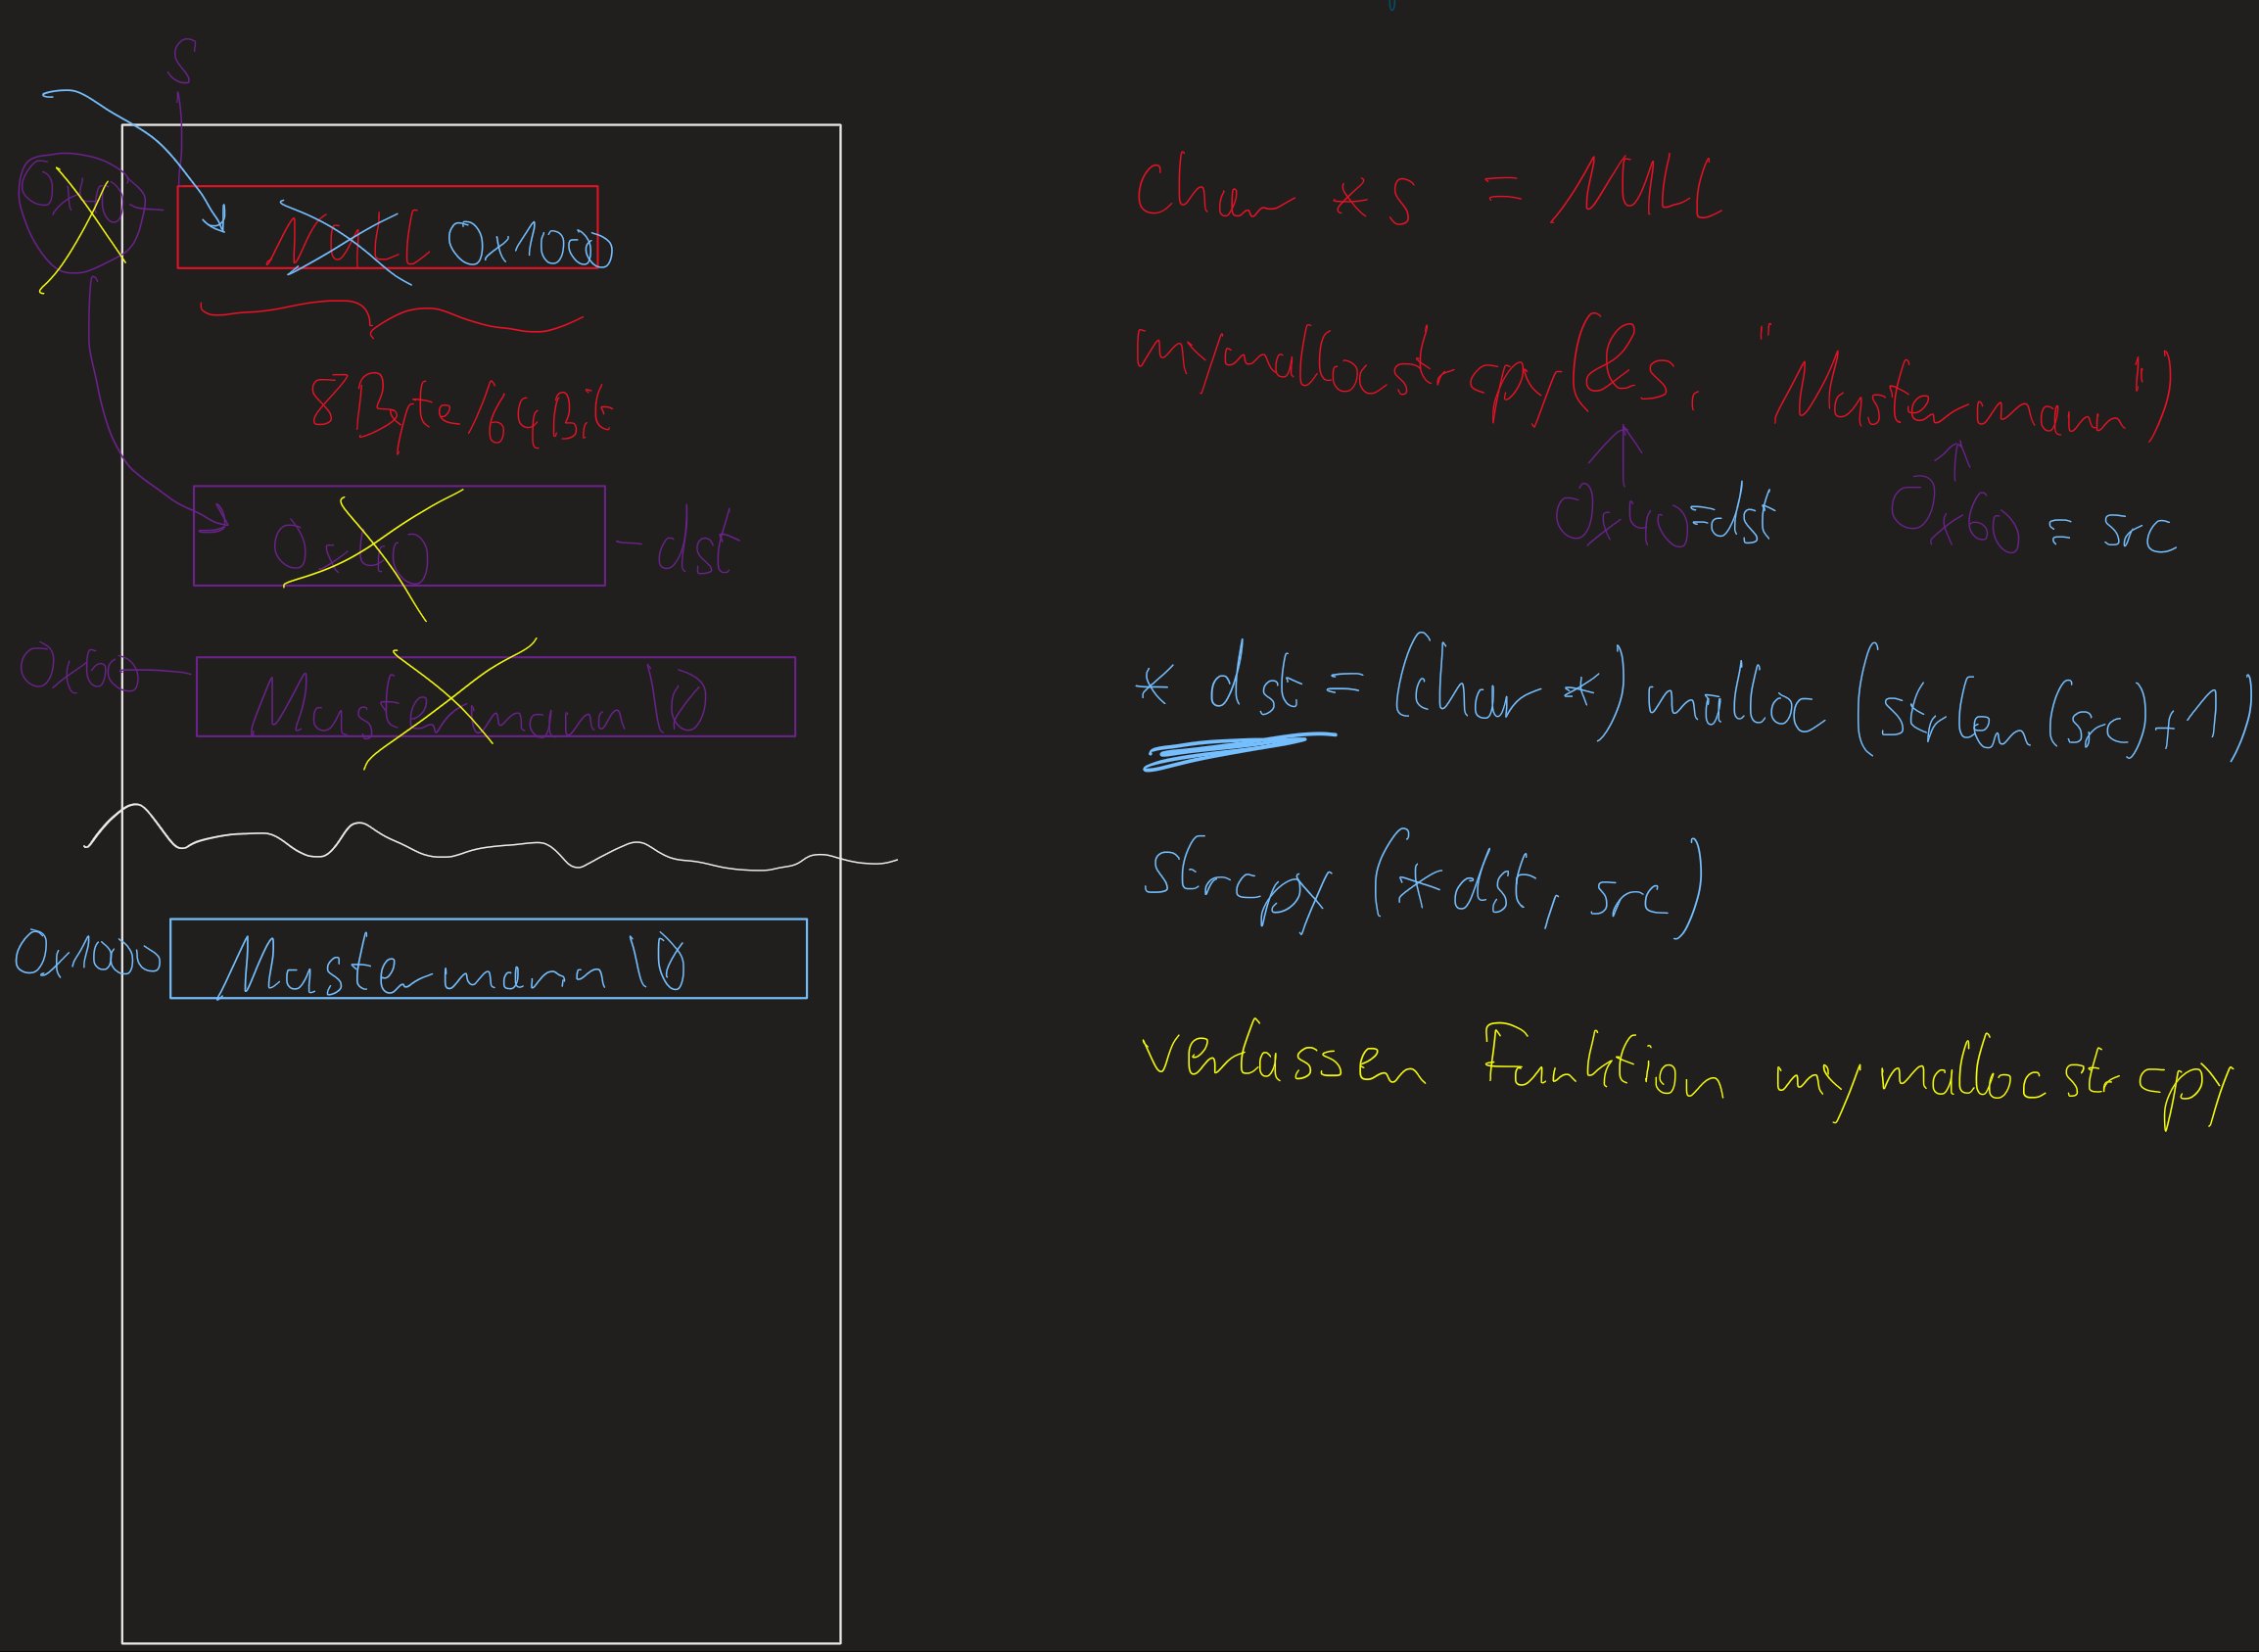 S
0x40
NULL 0x100
8Byte/64Bit
0x40 - dst
0x60
Mustermann \0
0x100
Mustermann \0
char *s = NULL
mymallocstrcpy(&s, "Mustermann")
0x40 = dst
0x60 = src
* dst = (char *) malloc (strlen(src)+1)
strcpy (*dst, src)
verlassen Funktion mymallocstrcpy